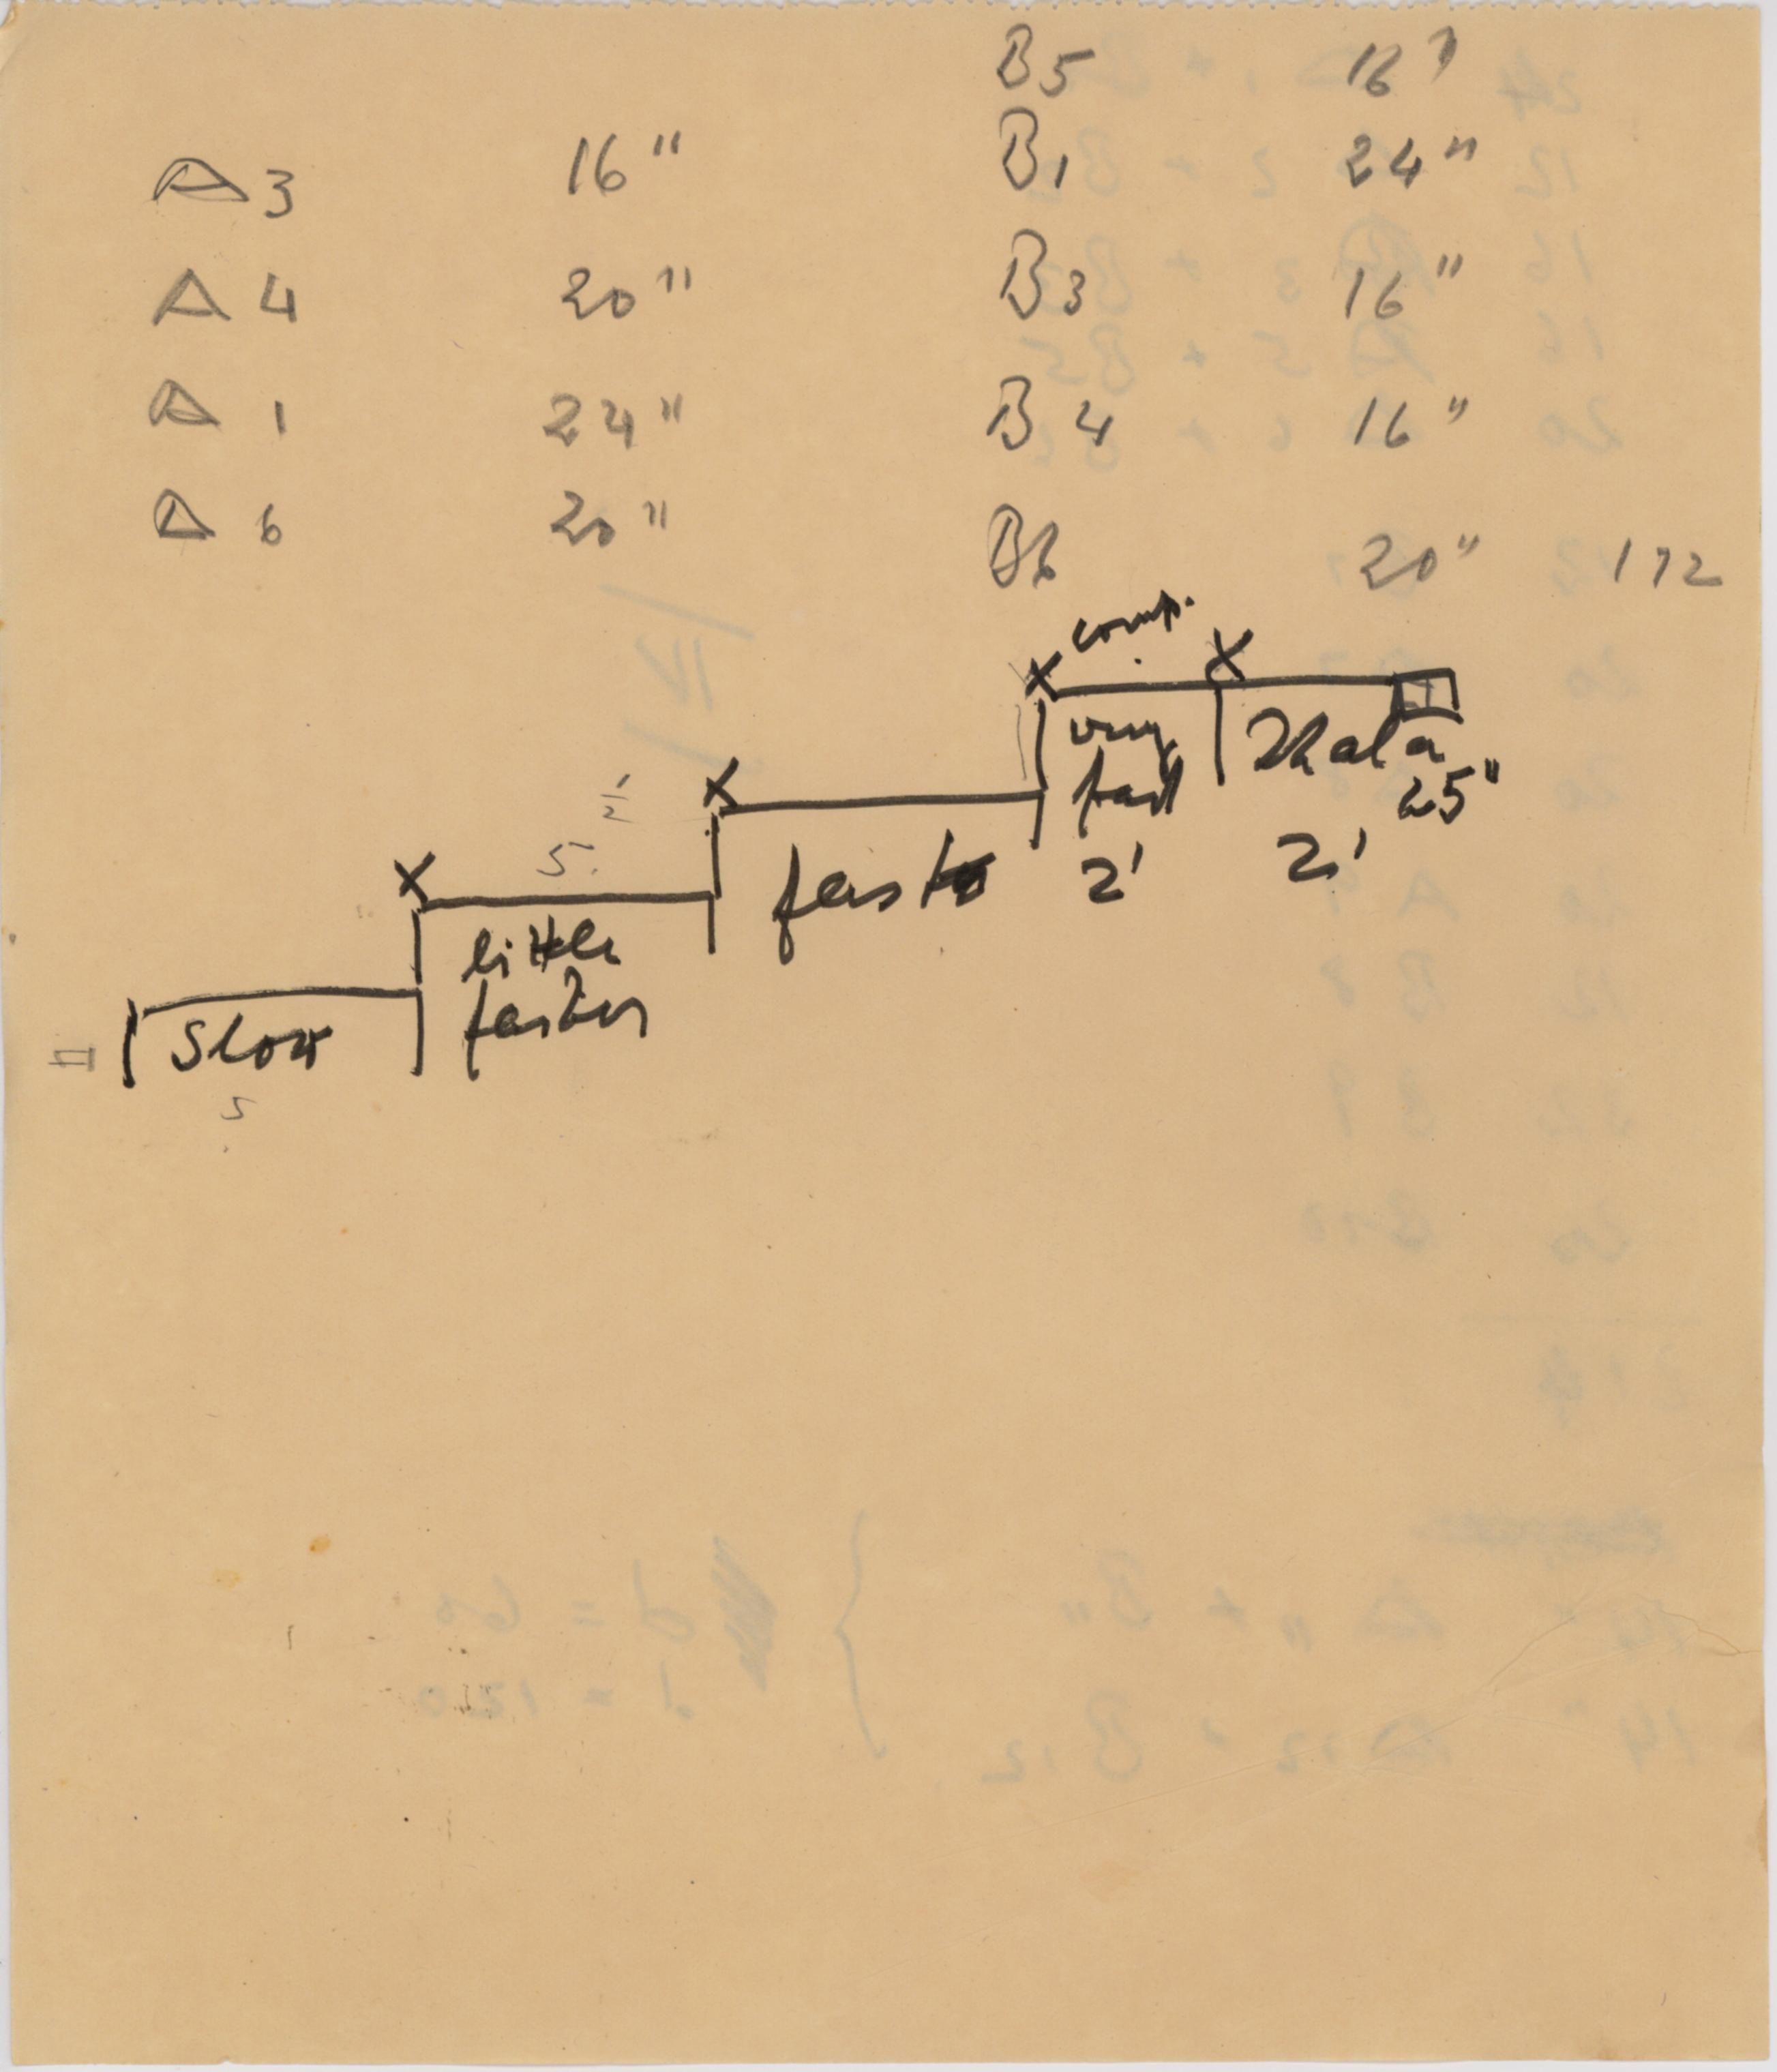 B5 16"
A3 16" B1 24"
A 4 20" B3 16"
A 1 24" B 4 16"
A 6 20" B6 20" 172
X X
very fast 2' 25"
2'
X
1/2
5.
fast
X
little
faster
II Slow
5